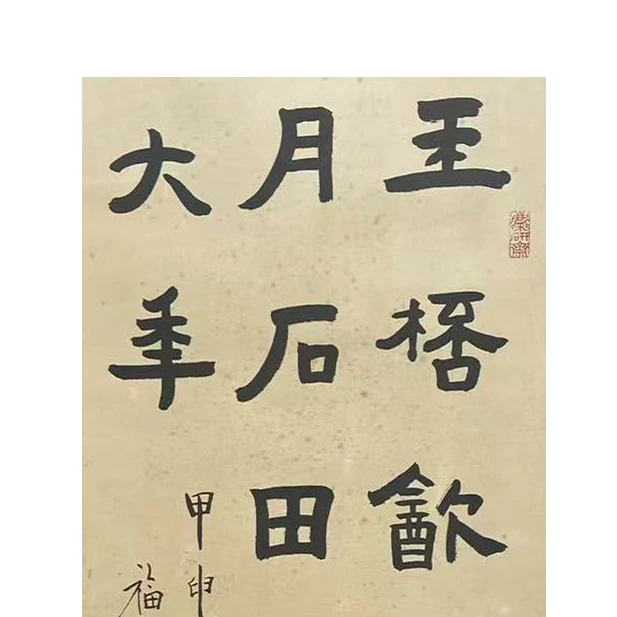 王桮㱃
月石田
大年
甲申
福